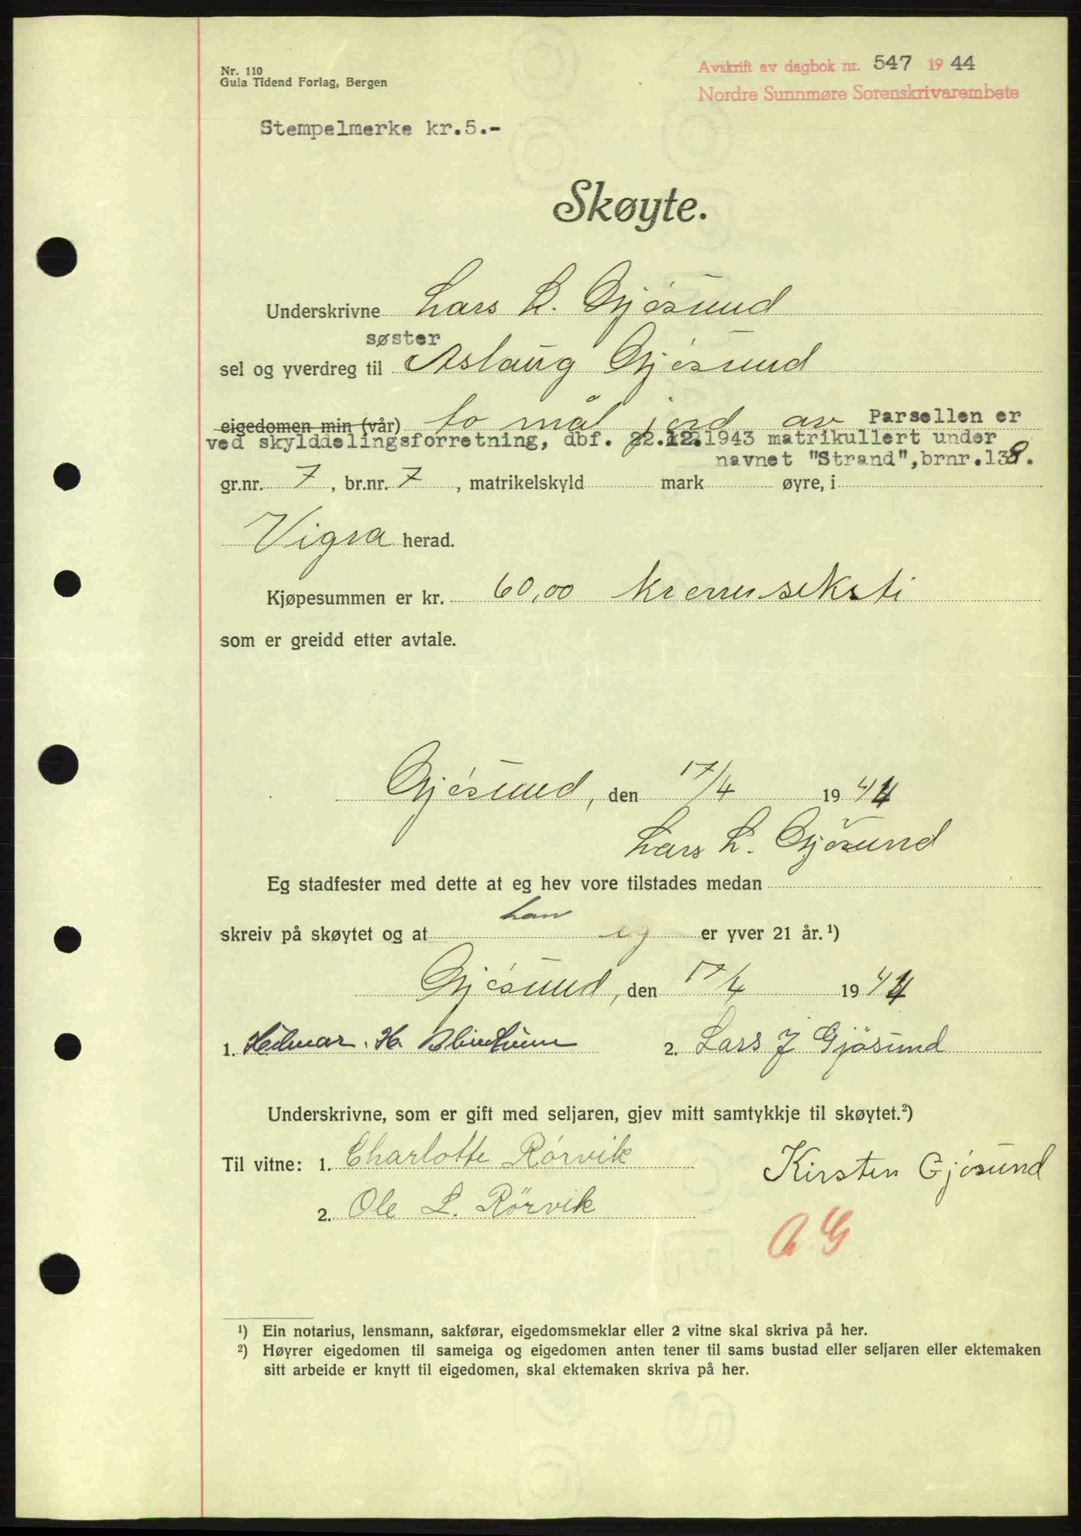 Nr. 110
Gula Tidend Forlag, Bergen
Avskrift av dagbok nr. 547 1944
Nordre Sunnmøre Sorenskrivarembete
Stempelmerke kr.5.-
Skøyte.
Underskrivne Lars L. Gjøsund
søster
sel og yverdreg til Aslaug Gjøsund
eigedomen min (vår) to mål jord av Parsellen er
ved skylddelingsforretning, dbf. 22.12.1943 matrikullert under
navnet "Strand", brnr.138.
gr.nr. 7, br.nr. 7, matrikelskyld mark øyre, i
Vigra herad.
Kjøpesummen er kr. 60,00 kroner seksti
som er greidd etter avtale.
Gjøsund, den 17/4 1944
Lars L. Gjøsund
Eg stadfester med dette at eg hev vore tilstades medan
han
skreiv på skøytet og at er yver 21 år.¹)
Gjøsund, den 17/4 1944
1. Hilmar. H. 2. Lars J Gjøsund
Underskrivne, som er gift med seljaren, gjev mitt samtykkje til skøytet.²)
Til vitne: 1. Charlotte Rörvik Kirsten Gjøsund
2. Ole L. Rörvik
A G
¹) Ein notarius, lensmann, sakførar, eigedomsmeklar eller 2 vitne skal skriva på her.
²) Høyrer eigedomen til sameiga og eigedomen anten tener til sams bustad eller seljaren eller ektemaken
sitt arbeide er knytt til eigedomen, skal ektemaken skriva på her.